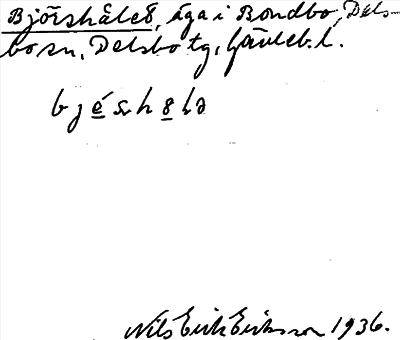 Björshålet, äga i Bondbo, Dels-
bo sn, Delsbo tg, Gävleb. l.
Nils Erik Eriksson 1936.